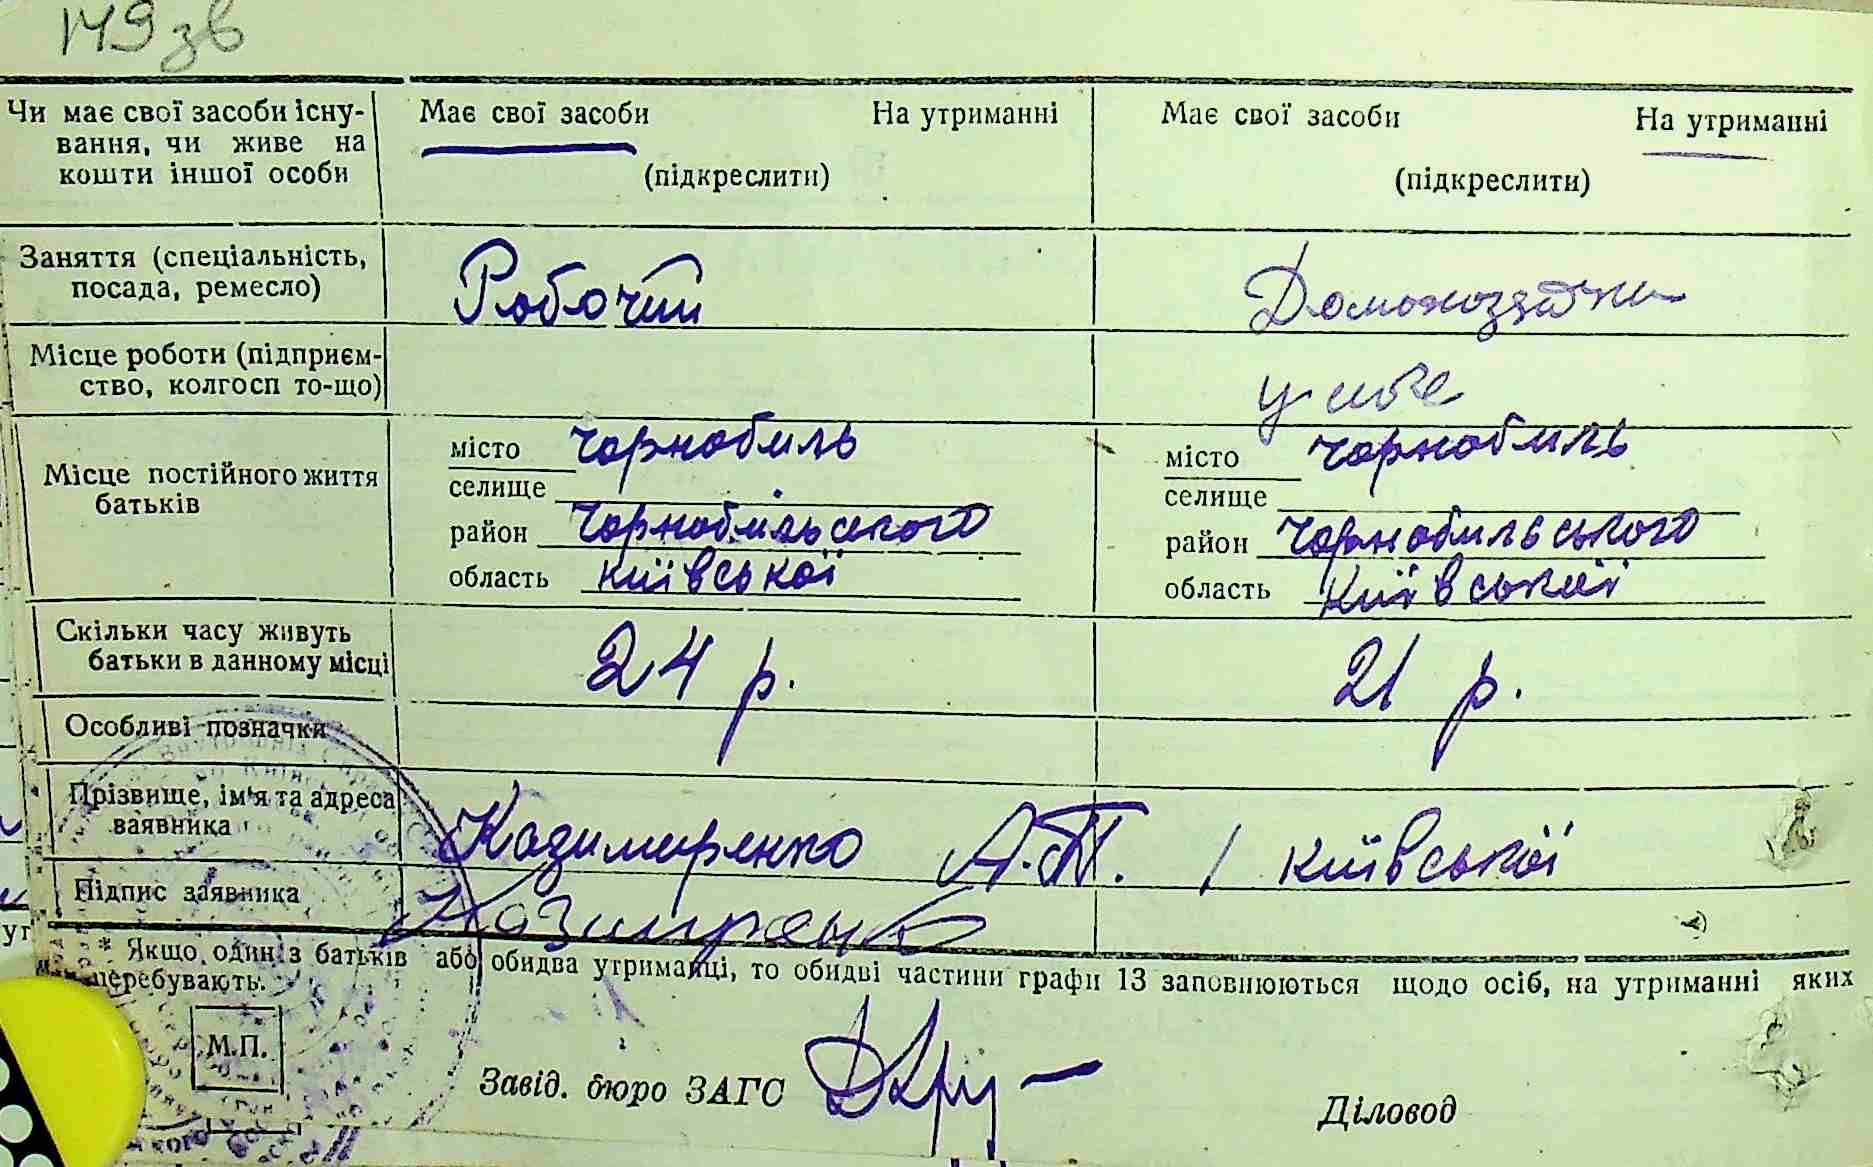 149 зв
Чи має свої засоби існу- Має свої засоби На утриманні Має свої засоби На утриманні
вання, чи живе на
кошти іншої особи (підкреслити) (підкреслити)
Заняття (спеціальність,
посада, ремесло) Робочий Домохозяйка
Місце роботи (підприєм-
ство, колгосп то-що)
місто Чорнобиль місто Чорнобиль
Місце постійного життя селище селище
батьків район Чорнобильського район Чорнобильського
область Київської область Київської
Скільки часу живуть
батьки в данному місці 24 р. 21 р.
Особливі позначки
Прізвище, ім'я та адреса
заявника Казимиренко А.Т. / Київської
Підпис заявника Казимиренко
* Якщо один з батьків або обидва утриманці, то обидві частини графи 13 заповнюються щодо осіб, на утриманні яких
перебувають.
М.П.
Завід. бюро ЗАГС
Діловод